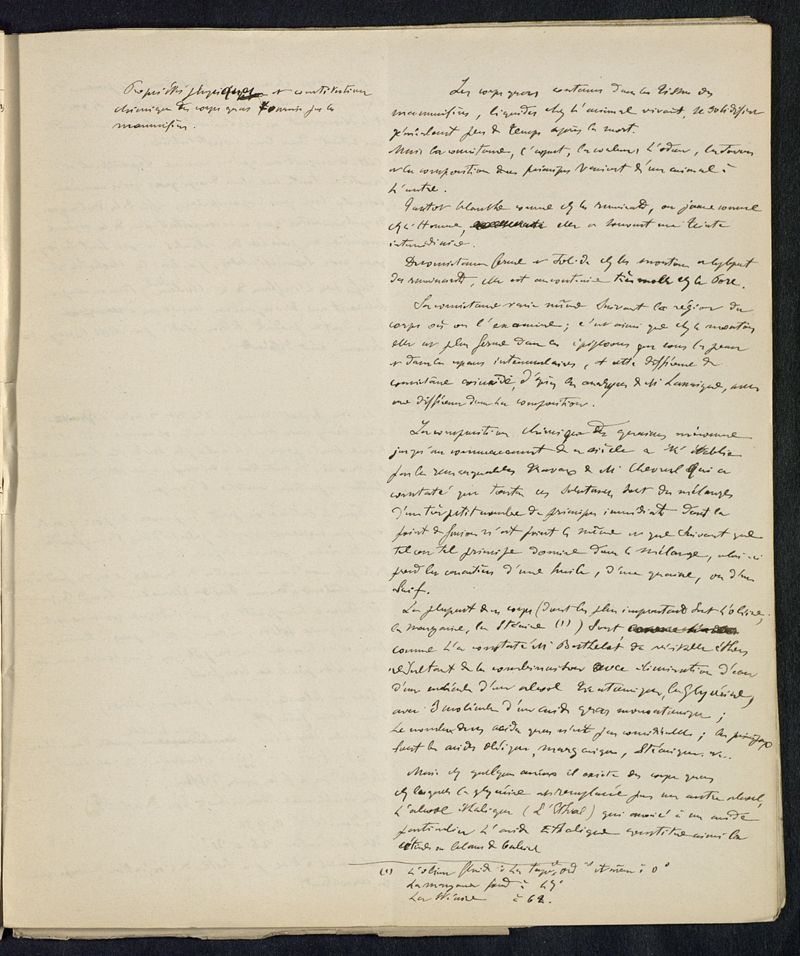 Propriétés physiques et constitution
chimique des corps gras fournis par les
mammifères.
Les corps gras contenus dans les tissus des
mammifères, liquides chez l'animal vivant, se solidifient
généralement peu de temps après la mort.
Mais la consistance, l'aspect, la couleur, l'odeur, la saveur
et la composition de ces principes varient d'un animal à
l'autre.
Tantôt blanche comme chez les ruminants, ou jaune comme
chez l'Homme, elle a souvent une teinte
intermédiaire.
De consistance ferme et solide chez les moutons et la plupart
des ruminants, elle est au contraire très molle chez le Porc.
La consistance varie même suivant la région du
corps où on l'examine; c'est ainsi que chez le mouton
elle est plus ferme dans les épiploons que sous la peau
et dans les espaces intermusculaires, et cette différence de
consistance coïncide, d'après les analyses de Mr Lassaigne, avec
une différence dans la composition.
La composition chimique des graisses méconnue
jusqu'au commencement de ce siècle a été établie
par les remarquables travaux de Mr Chevreul qui a
constaté que toutes ces substances sont des mélanges
d'un très petit nombre de principes immédiats dont le
point de fusion n'est point le même et que suivant que
tel ou tel principe domine dans le mélange, celui-ci
prend les caractères d'une huile, d'une graisse, ou d'un
Suif.
La plupart de ces corps (dont les plus importants sont l'oléine,
la margarine, la stéarine (1)) sont
comme l'a constaté Mr Berthelot de véritables éthers
résultant de la combinaison avec élimination d'eau
d'une molécule d'un alcool triatomique, la glycérine,
avec 3 molécules d'un acide gras monoatomique;
le nombre de ces acides gras n'est pas considérable; les principaux
sont les acides oléique, margarique, stéarique etc.
Mais chez quelques animaux il existe des corps gras
chez lesquels la glycérine est remplacée par un autre alcool,
l'alcool éthalique (l'Ethal) qui associé à un acide
particulier l'acide Ethalique constitue ainsi la
cétine ou blanc de baleine
(1) L'oléine fluide à la tempre ordre et même à 0°
La margarine fond à 49°
La stéarine à 62.